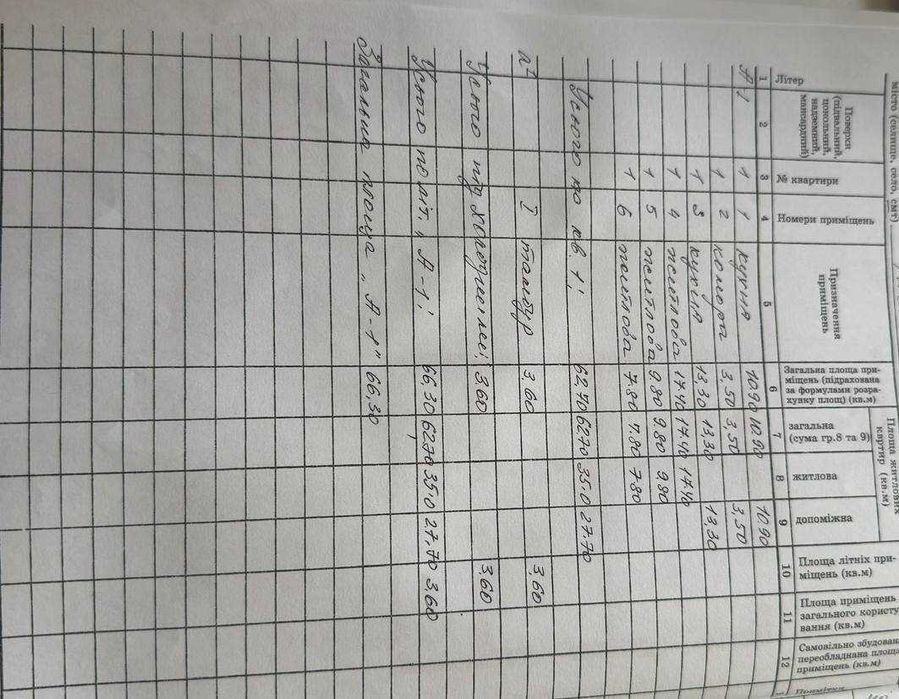 місто (селище, село, смт)
Літер
Поверхи (підвальний, цокольний, надземний, мансардний)
№ квартири
Номери приміщень
Призначення приміщень
Загальна площа приміщень (підрахована за формулами розрахунку площ) (кв.м)
Площа житлових квартир (кв.м)
загальна (сума гр.8 та 9)
житлова
допоміжна
Площа літніх приміщень (кв.м)
Площа приміщень загального користування (кв.м)
Самовільно збудована переобладнана площа приміщень (кв.м)
Примітки
1 2 3 4 5 6 7 8 9 10 11 12
А 1 1 1 кухня 10.90 10.90 10.90
1 2 комора 3,50 3,50 3,50
1 3 кухня 13,30 13,30 13,30
1 4 житлова 17.40 17.40 17.40
1 5 житлова 9.80 9.80 9.80
1 6 житлова 7.80 7.80 7.80
Усього по кв. 1; 62.70 62.70 35.0 27.70
а¹ I тамбур 3.60 3.60
Усього 3.60 3.60
Усього по літ. „А-1" 66.30 62.70 35.0 27.70 3.60
Загальна площа „А-1" 66,30